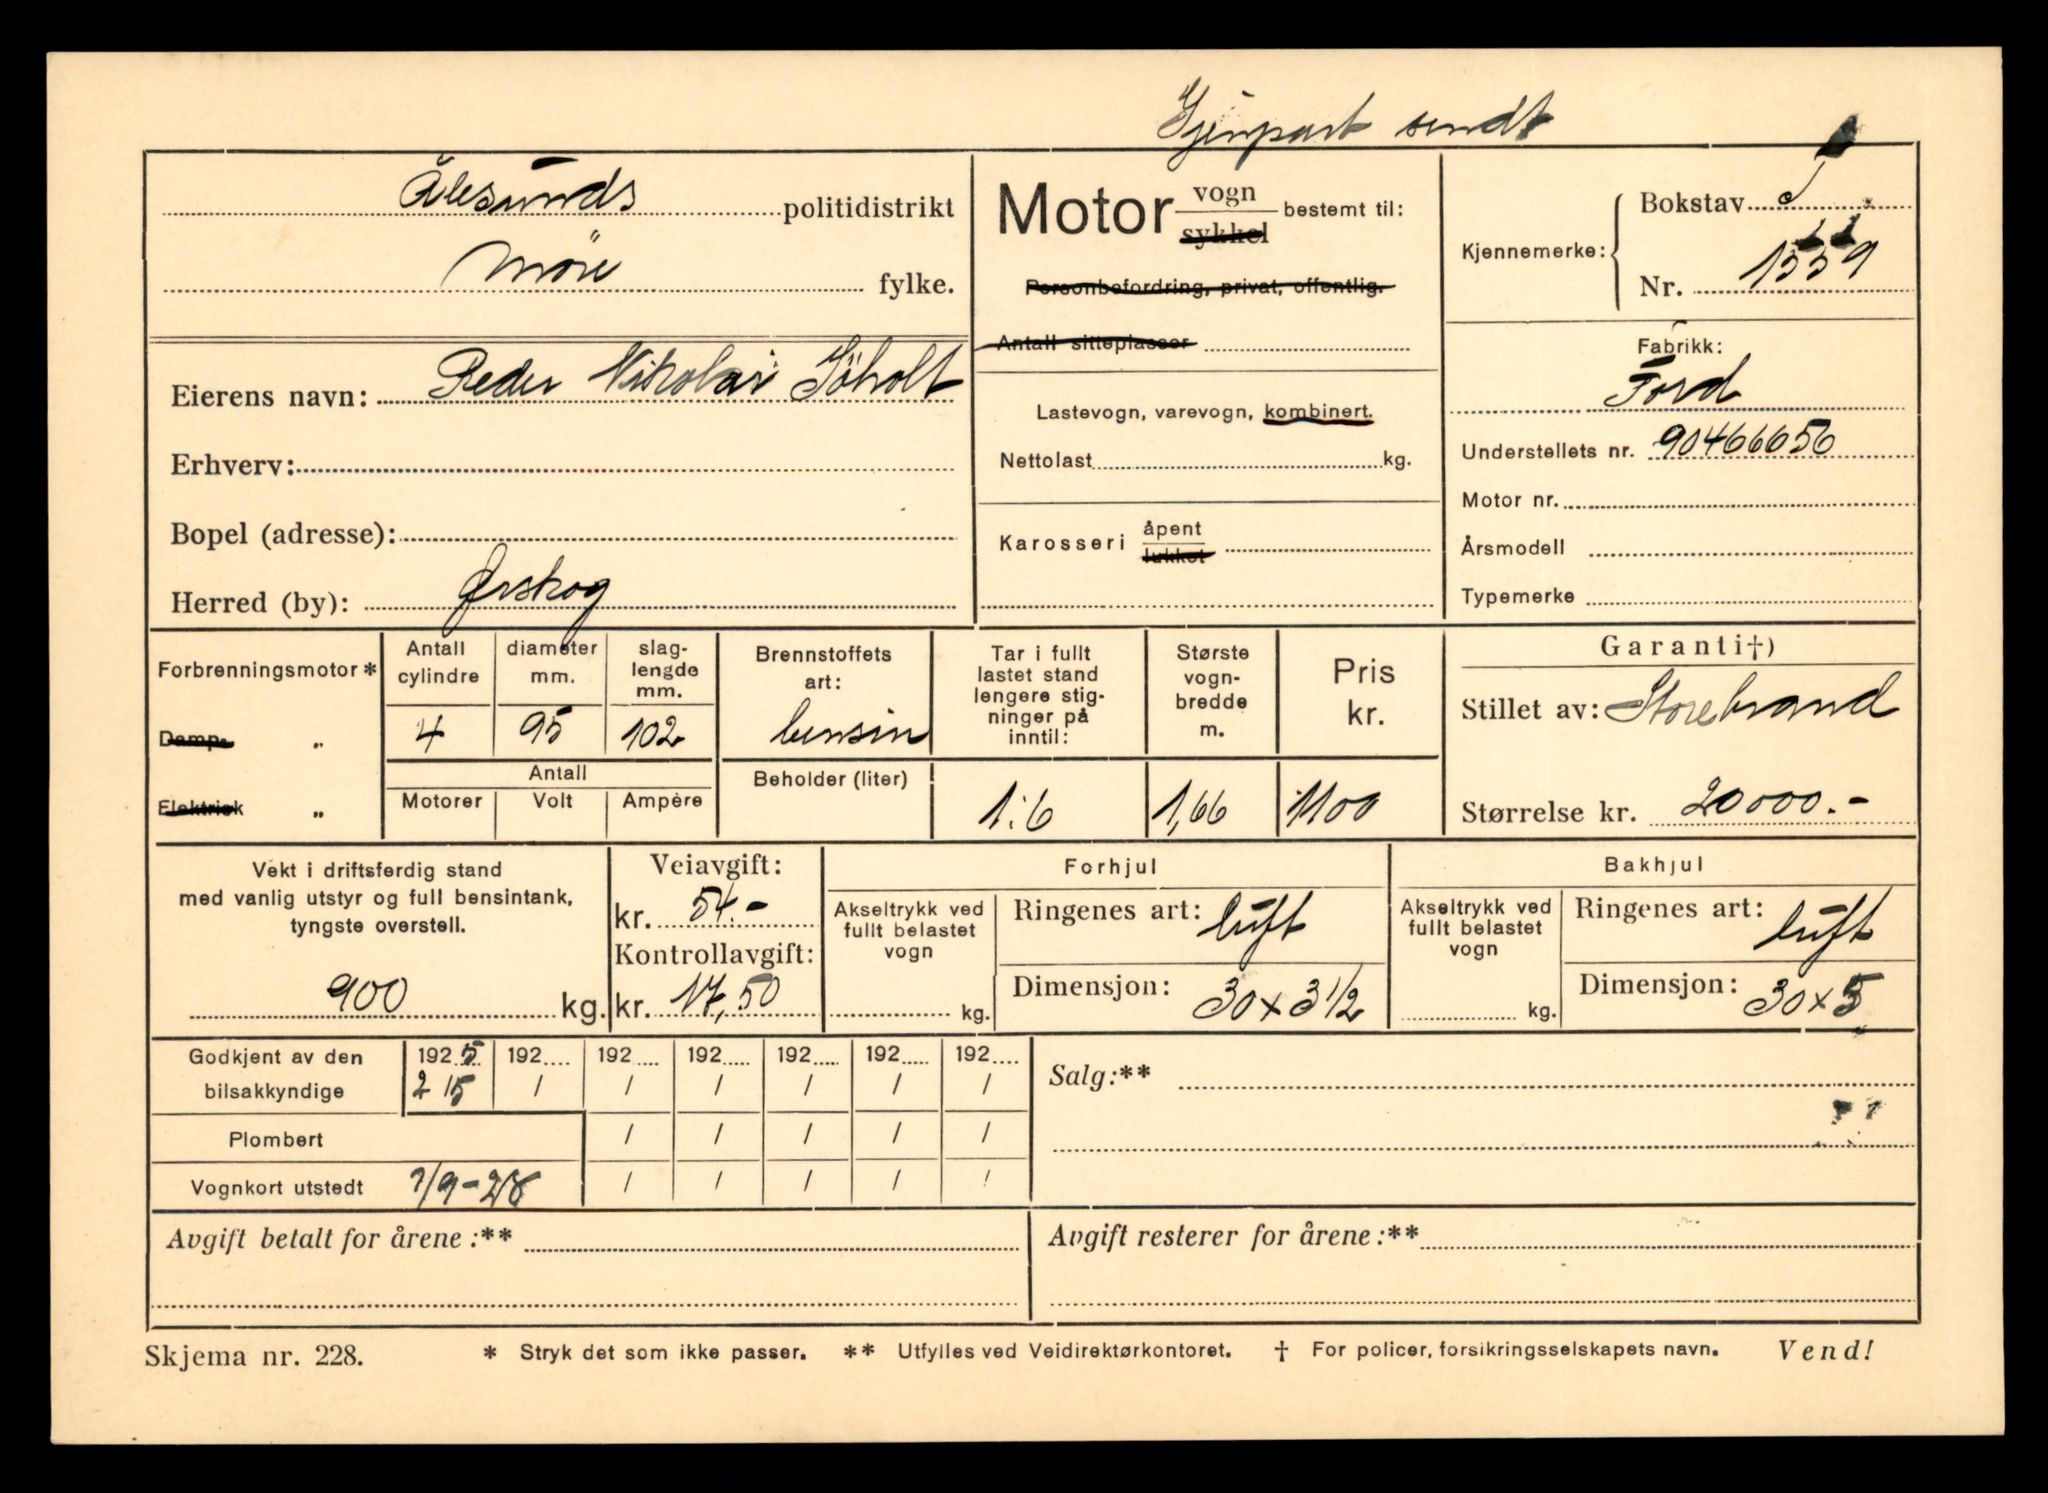 Gjenpart sendt
Ålesunds politidistrikt
Möre fylke.
Eierens navn: Peder Nikolai Söholt
Erhverv:
Bopel (adresse):
Herred (by): Ørskog
Motor vogn sykkel bestemt til:
Personbefordring, privat, offentlig.
Antall sitteplasser
Lastevogn, varevogn, kombinert.
Nettolast kg.
Karosseri åpent lukket
Kjennemerke:
Bokstav
Nr. 1559
Fabrikk:
Ford
Understellets nr. 90466656
Motor nr.
Årsmodell
Typemerke
Forbrenningsmotor *
Damp- „
Elektrisk „
Antall cylindre
4
diameter mm.
95
slag-
lengde
mm.
102
Antall
Motorer Volt Ampère
Brennstoffets
art:
bensin
Beholder (liter)
Tar i fullt
lastet stand
lengere stig-
ninger på
inntil:
1:6
Største
vogn-
bredde
m.
1,66
Pris
kr.
1100
Garanti†)
Stillet av: Storebrand
Størrelse kr. 20000.-
Vekt i driftsferdig stand
med vanlig utstyr og full bensintank,
tyngste overstell.
900 kg.
Veiavgift:
kr. 54.-
Kontrollavgift:
kr. 17,50
Forhjul
Akseltrykk ved
fullt belastet
vogn
kg.
Ringenes art: luft
Dimensjon: 30 x 3 1/2
Bakhjul
Akseltrykk ved
fullt belastet
vogn
kg.
Ringenes art: luft
Dimensjon: 30 x 5
Godkjent av den
bilsakkyndige
1925 192 192 192 192 192 192
2/5 / / / / / /
Plombert / / / / /
Vognkort utstedt 7/9-28 / / / / /
Salg:**
Avgift betalt for årene :**
Avgift resterer for årene :**
Skjema nr. 228. * Stryk det som ikke passer. ** Utfylles ved Veidirektørkontoret. † For policer, forsikringsselskapets navn. Vend!